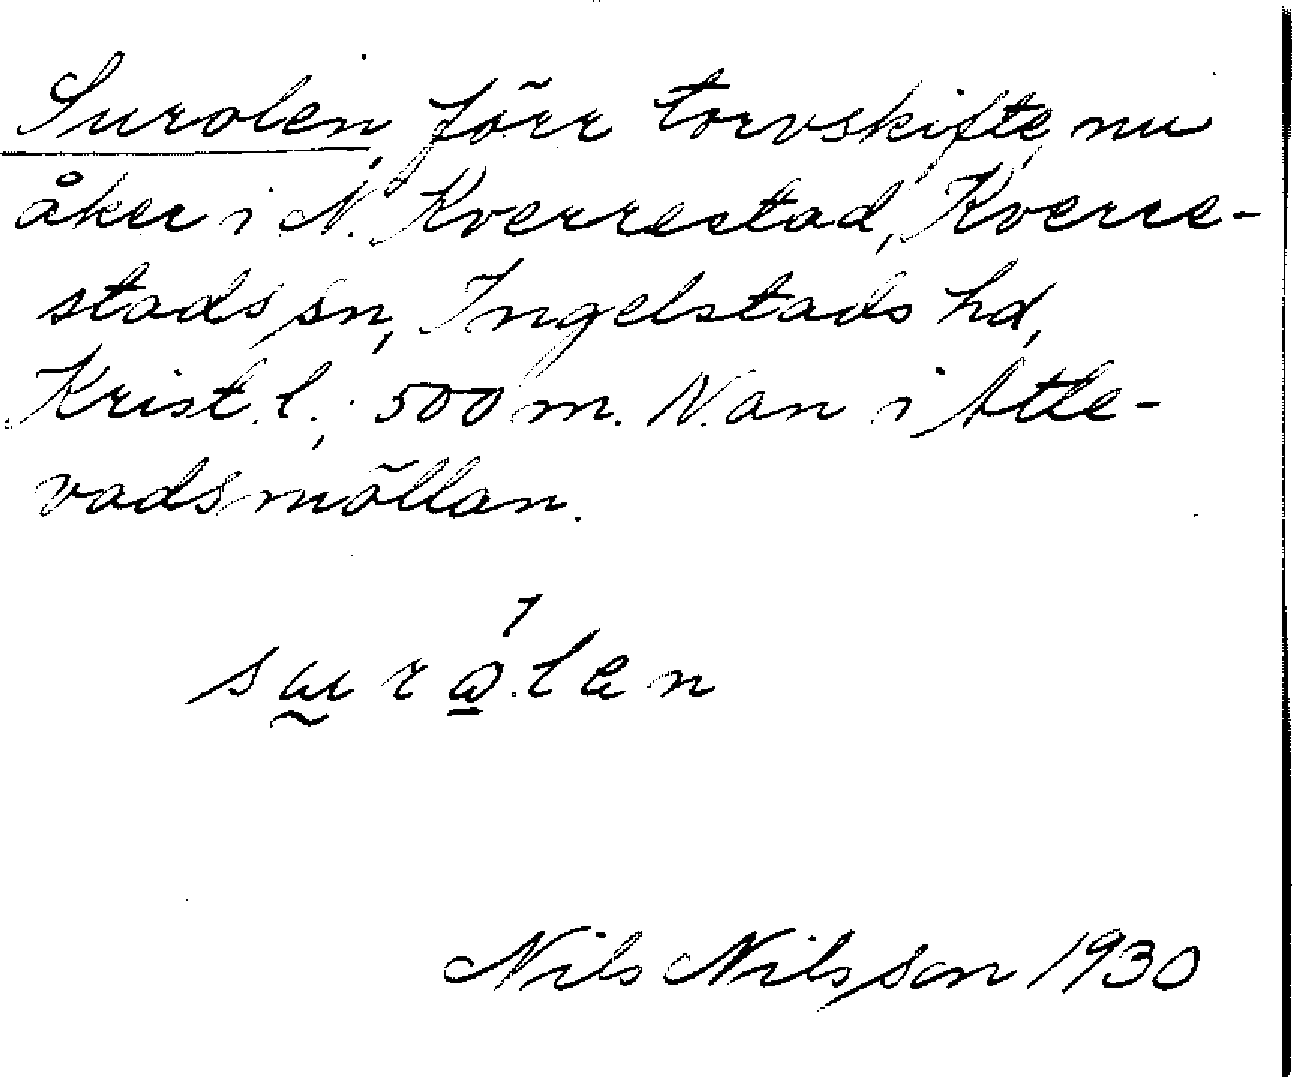 Surolen, förr torvskifte, nu
åker i N. Kverrestad, Kverre-
stads sn, Ingelstads hd,
Krist. l.; 500 m. N. an i Atle-
vadsmöllan.
surålen
Nils Nilsson 1930